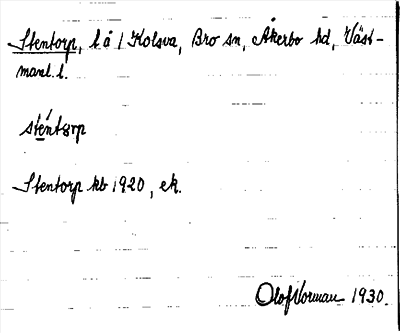 Stentorp, l å / Kolsva, Bro sn, Åkerbo hd, Väst-
manl. l.
sténtorp
Stentorp kb 1920, ek.
Olof Norman 1930.